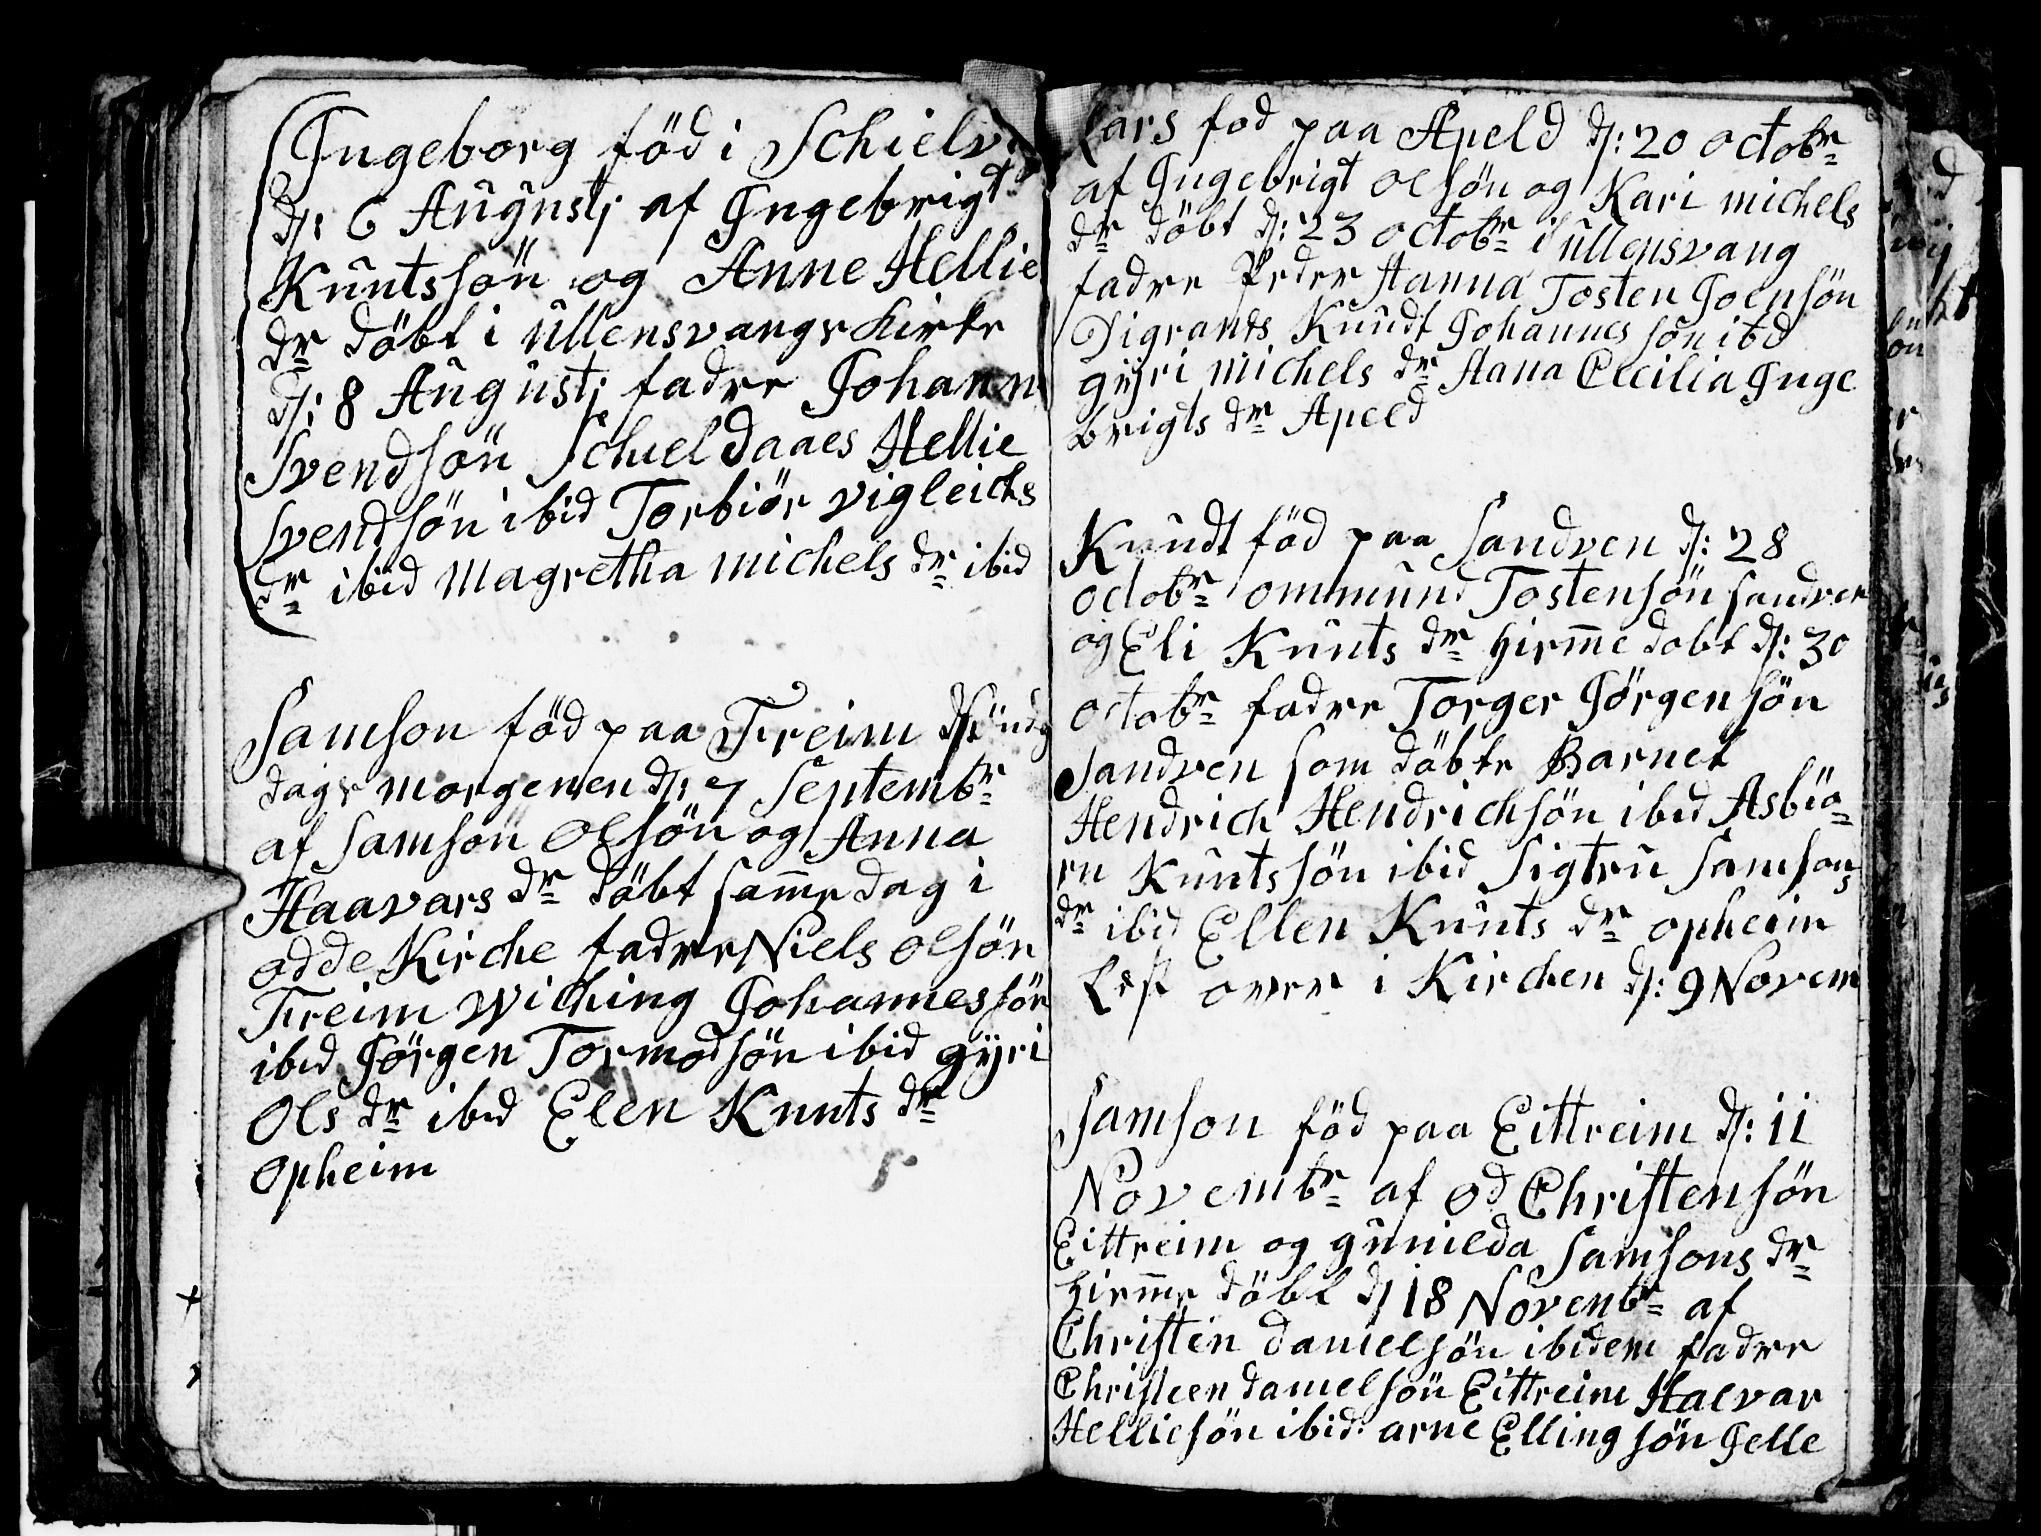 Ingeborg föd i Schielv
d: 6 Augustj af Ingebrigt
Kuntssön og Anne Hellie
dr döbt i Ullensvangs Kirke
d: 8 Augustj fadre Johann
Svendsön Schieldaaes Hellie
Svendsön ibid Torbiör vigleichs
dr ibid Magretha michels dr ibid
Samson föd paa Freim Sönd
dags morgenen d: 7 Septembr
af Samson Olsön og Anna
Haavars dr döbt samme dag i
odde Kirche fadre Niels Olsön
Freim Wiching Johannessön
ibid Jörgen Tormodsön ibid gÿri
Ols dr ibid Elen Knuts dr
Opheim
Lars fod paa Apeld d: 20 octobr
af Ingebrigt Olsön og Kari michels
dr döbt d: 23 octobr i Ullensvang
fadre Peder Hanna Tosten Joensön
Digranæs Knudt Johannes sön ibd
gÿri michels dr Hana Cecilia Inge
brigts dr Apeld
Knudt föd paa Sandven d: 28
octobr ommund Tostensön sandven
og Eli Knuts dr hirmme dobt d: 30
octobr fadre Torger Jörgensön
Sandven som döbte Barnet
Hendrich Hendrichsön ibid Asbiö=
rn Kuntssön ibid Sigtru Samsons
dr ibid Ellen Knuts dr opheim
Lest over i Kirchen d: 9 Novem
Samson föd paa Eittreim d: 11
Novembr af od Christensön
Eittreim og gunilda Samsons dr
hirmme döbt d 18 Novembr af
Christen danielsön ibidem fadre
Christeen danielsön Eittreim Halvar
Helliesön ibid: arne Ellingsön Jelle